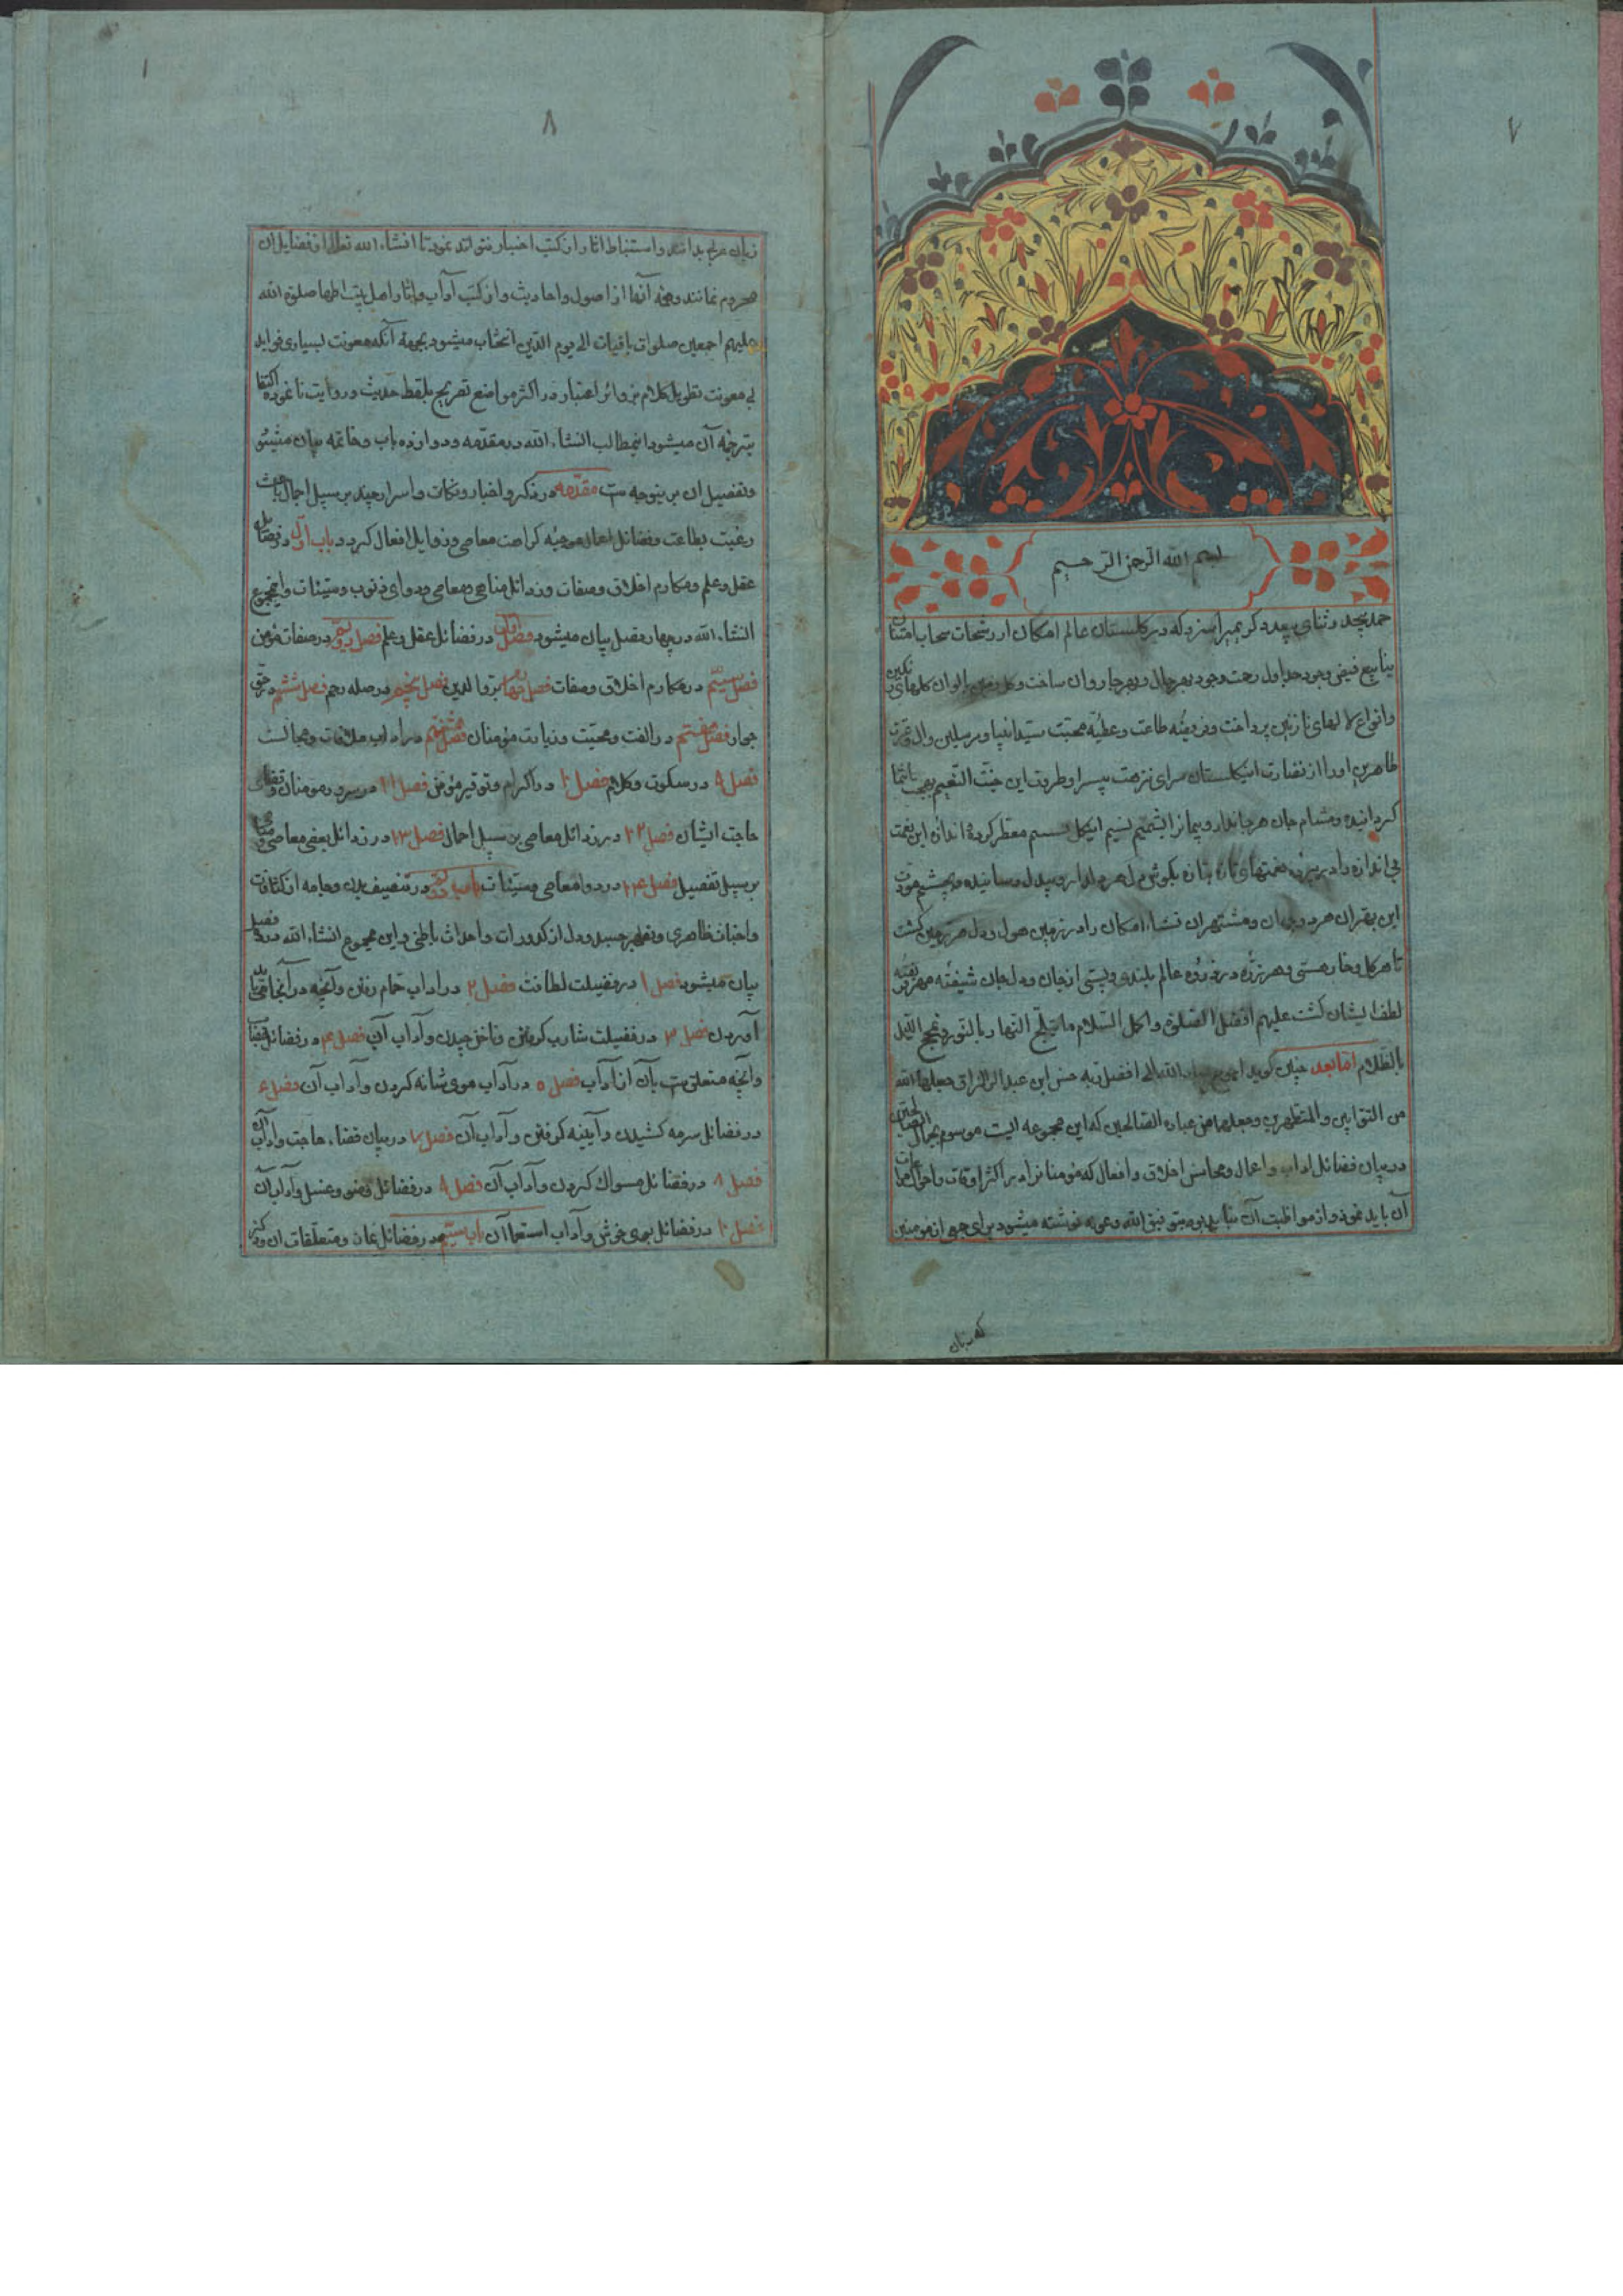 ۷
بسم الله الرحمن الرحیم
حمد بیحد و ثنای بیعدد کریمیرا سزد که در گلستان عالم امکان از رشحات سحاب امتنان
ینابیع فیض وجود جداول رحمت وجود بهر حال و بهر جا روان ساخت و الوان گلهای رنگین
وانواع لالهای نازنین پرداخت و فریضه طاعت و عطیّه محبّت سیّد انبیا و مرسلین وال و عترت
طاهرین او را از نضارت این گلستان سرای نزهت پیرا و طروات این جنّت النّعیم
گردانیده و مشام جان هر جاندار را بشمیم نسیم این گل معطّر کرده اندازه این نعمت
بی اندازه داد نعمتهای تازه بتازه بگوش دل هر رسانیده و بچشم
این هر دو جهان و مشتهران امکان را در زمین دل هر
تا هر گل و خار هستی و هر ذرّه در ذروه عالم بلندی و پستی از جان و دل جان شیفته
لطف ایشان گشت علیهم افضل الصّلوة واکمل السّلام ما یتبلّج النّهار بالنّور اللّیل
بالظّلام امّا بعد چنین گوید عباد الله الی افضل ربه حسن ابن عبد الرزاق جعلهما الله
من التوّابین والمتطهرین وجعلهما من عباده الصّالحین که این مجموعه ایست موسوم بجمال الصالحین
در بیان فضائل اداب و اعمال و محاسن اخلاق و افعال که مؤمنانرا در اکثر اوقات و احوال مراعات
آن باید نمود و از مواظبت آن نباید بود بتوفیق الله وعونه نوشته میشود برای جمعی از مؤمنین
که زبان
۸
زبان عربی بدانند و استنباط اثار از کتب اخبار نتوانند نمود تا انشاء الله تعالی از فضایل ان
محروم نمانند وهمه آنها از اصول و احادیث و از کتب آداب و اثار اهل بیت اطهار صلوة الله
علیهم اجمعین صلوات باقیات الی یوم الدّین انتخاب میشود بجهة آنکه معونت بسیاری فواید
بی معونت تطویل کلام در اکثر مواضع تصریح بلفظ حدیث و روایت نانموده اکتفا
بترجمه آن میشود اینمطالب انشاء الله در مقدّمه و دوازده باب و خاتمه بیان میشود
وتفصیل ان برینوجه ست مقدّمه در ذکر اخبار و نکات و اسرار چند بر سبیل اجمال باعث
رغبت بطاعت و فضائل اعمال موجبه کراهت معاصی و رذایل افعال گردد باب اوّل در فضائل
عقل و علم و مکارم اخلاق و صفات و رذائل مناهی و معاصی و دوای ذنوب و سیّئات و اینمجموع
انشاء الله در چهارده فصل بیان میشود فصل اوّل در فضائل عقل و علم فصل دویّم در صفات مؤمن
فصل سیّم در مکارم اخلاق و صفات فصل چهارم در برّ والدین فصل پنجم در صله رحم فصل ششم در حق
جوار فصل هفتم در الفت و محبّت و زیارت مؤمنان فصل هشتم در اداب ملاقات و مجالست
فصل ۹ در سکوت و کلام فصل ۱۰ در اکرام و توقیر مؤمن فصل ۱۱ در سرور مومنان و قضای
حاجت ایشان فصل ۱۲ در رذائل معاصی بر سبیل اجمال فصل ۱۳ در رذائل بعضی معاصی و مناهی
بر سبیل تفصیل فصل ۱۴ در دوا معاصی و سیّئات باب دویّم در تنظیف بدن و جامه از کثافات
واخباث ظاهری و تطهیر جسد و دل از کدورات و احداث باطنی و این مجموع انشاء الله در ده فصل
بیان میشود فصل ۱ در فضیلت لطافت فصل ۲ در اداب حمّام رفتن و آنچه در آنجا باید
آوردن فصل ۳ در فضیلت شارب گرفتن و ناخن چیدن و آداب آن فصل ۴ در فضائل خضاب
و آنچه متعلق ست بآن از آداب فصل ۵ در آداب موی شانه کردن و آداب آن فصل ۶
در فضائل سرمه کشیدن و آیینه گرفتن و آداب آن فصل ۷ در بیان قضاء حاجت و آداب آن
فصل ۸ در فضائل مسواک کردن و آداب آن فصل ۹ در فضائل وضو و غسل و آداب آن
فصل ۱۰ در فضائل بوی خوش و آداب استعمال آن باب سیّم در فضائل نماز و متعلّقات آن و ذکر